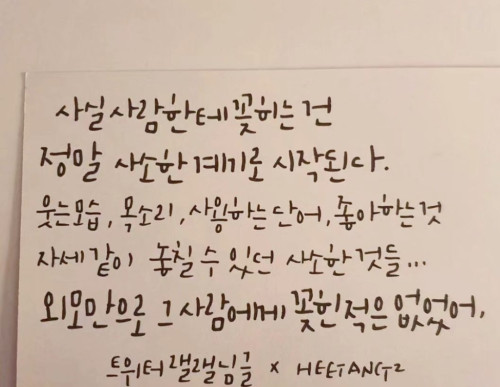 사실 사람한테 꽂히는 건
정말 사소한 계기로 시작된다.
웃는모습, 목소리, 사용하는단어, 좋아하는것
자세같이 놓칠 수 있던 사소한 것들...
외모만으로 그 사람에게 꽂힌적은 없었어,
트위터 랠랠님글 x HEETANGT2